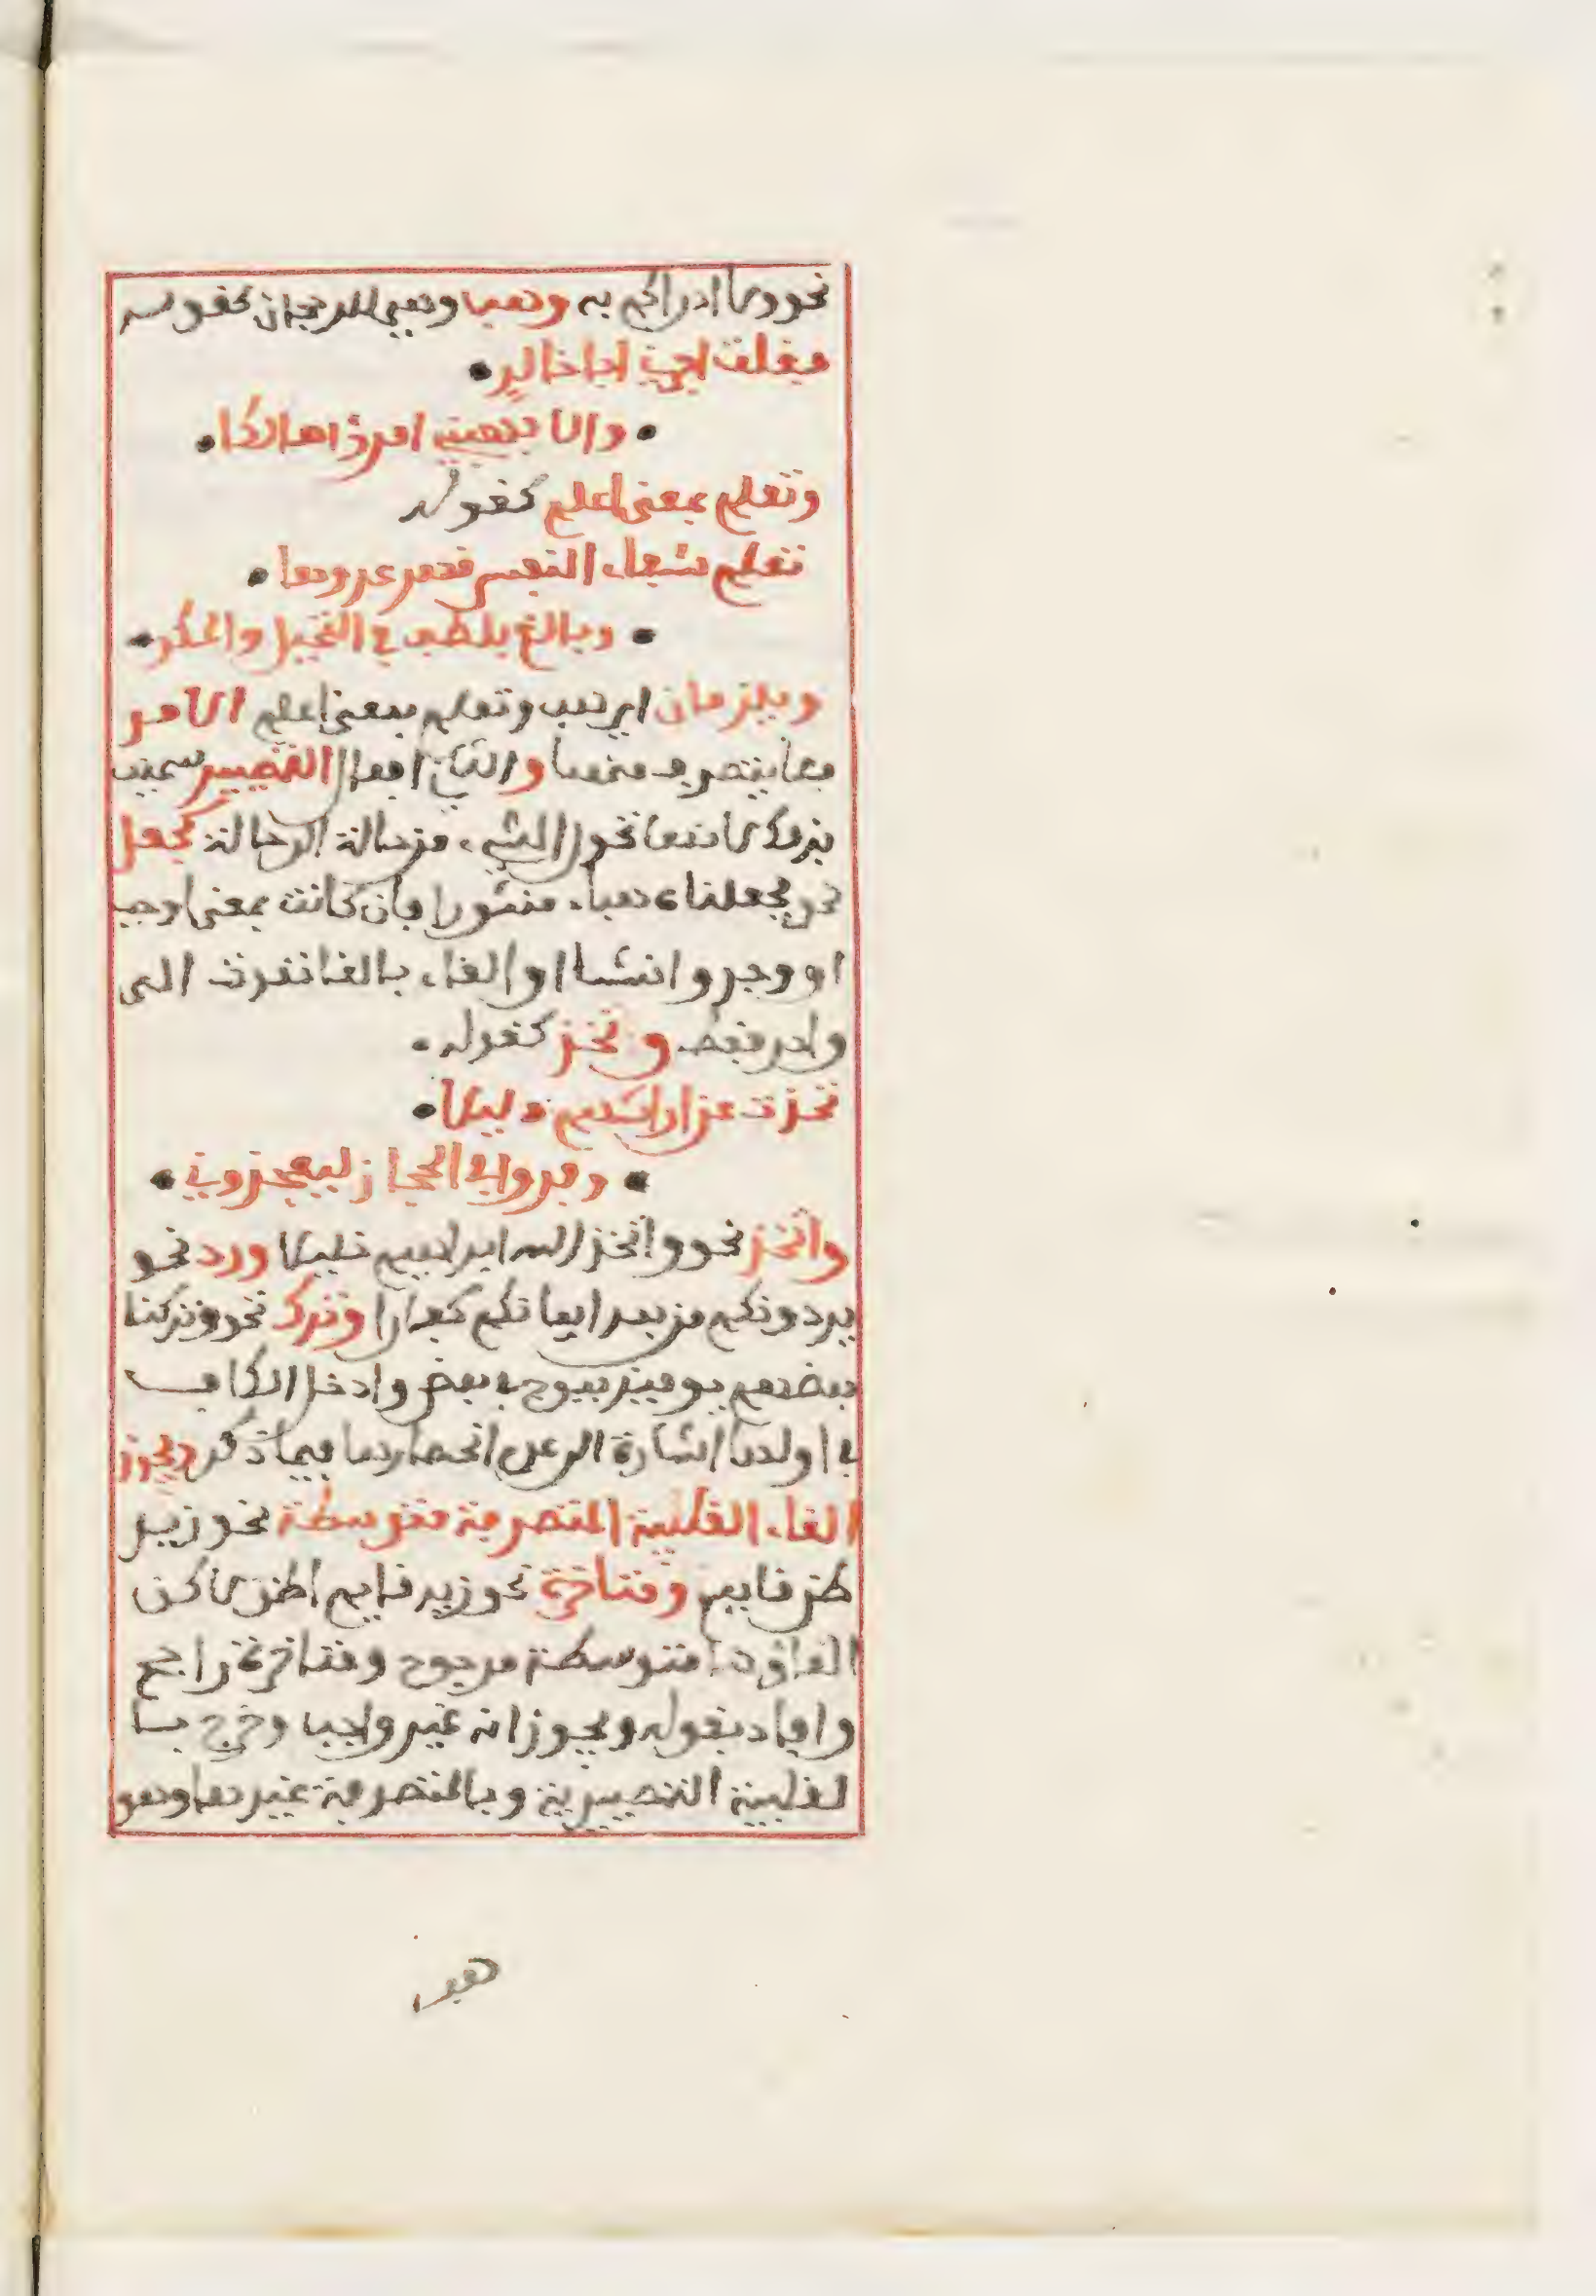 نحو ولا ادراكم به وهب وهي للرجحان كقوله
فقلت اجرني ابا خالد
والا فهبني امرؤا هالكا
وتعلم بمعنى اعلم كقوله
تعلم شفاء النفس قهر عدوها
وبالغ بلطف في التحيل والمكر
ويلزمان اي هب وتعلم بمعنى اعلم الامر
فما يتصرف منهما والثاني افعال التصيير سميت
بذلك لانها تحول الشيء من حالة الى حالة كجعل
نحو فجعلناه هباء منثورا فان كانت بمعنى اوجب
او وجد وانشا او القاء بالقا تعدت الى
واحد فقط وتخذ كقوله
تخذت عزاز اثرهم دليلا
وفروا في الحجاز ليعجزوني
واتخذ نحو واتخذ الله ابراهيم خليلا ورد نحو
يردونكم من بعد ايمانكم كفارا وترك نحو وتركنا
بعضهم يوميذ يموج في بعض وادخل الكاف
في اولها اشارة الى عدم انحصارها فيما ذكر ويجوز
الغاء القلبية المتصرفة متوسطة نحو زيد
ظن قايم ومتاخرة نحو زيد قايم اظن لاكن
الغاؤها متوسطة مرجوح ومتاخرة راجح
وافاد بقوله ويجوز انه غير واجب وخرج با
لقلبية التصييرية وبالمتصرفة غيرها وهو
هب